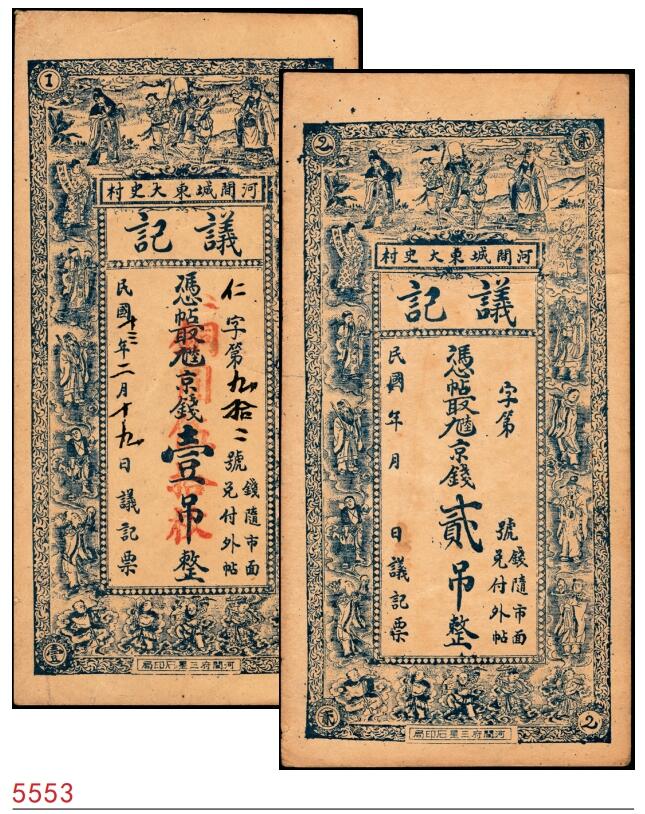 1
河間城東大史村
議記
仁字第九拾二號
錢隨市面
兌付外帖
憑帖取九𠮷京錢壹吊整
民國十三年二月十九日議記票
壹
河間府三星石印局
2
貳
河間城東大史村
議記
字第 號
錢隨市面
兌付外帖
京錢貳吊整
民國 年 月 日議記票
貳
2
河間府三星石印局
5553